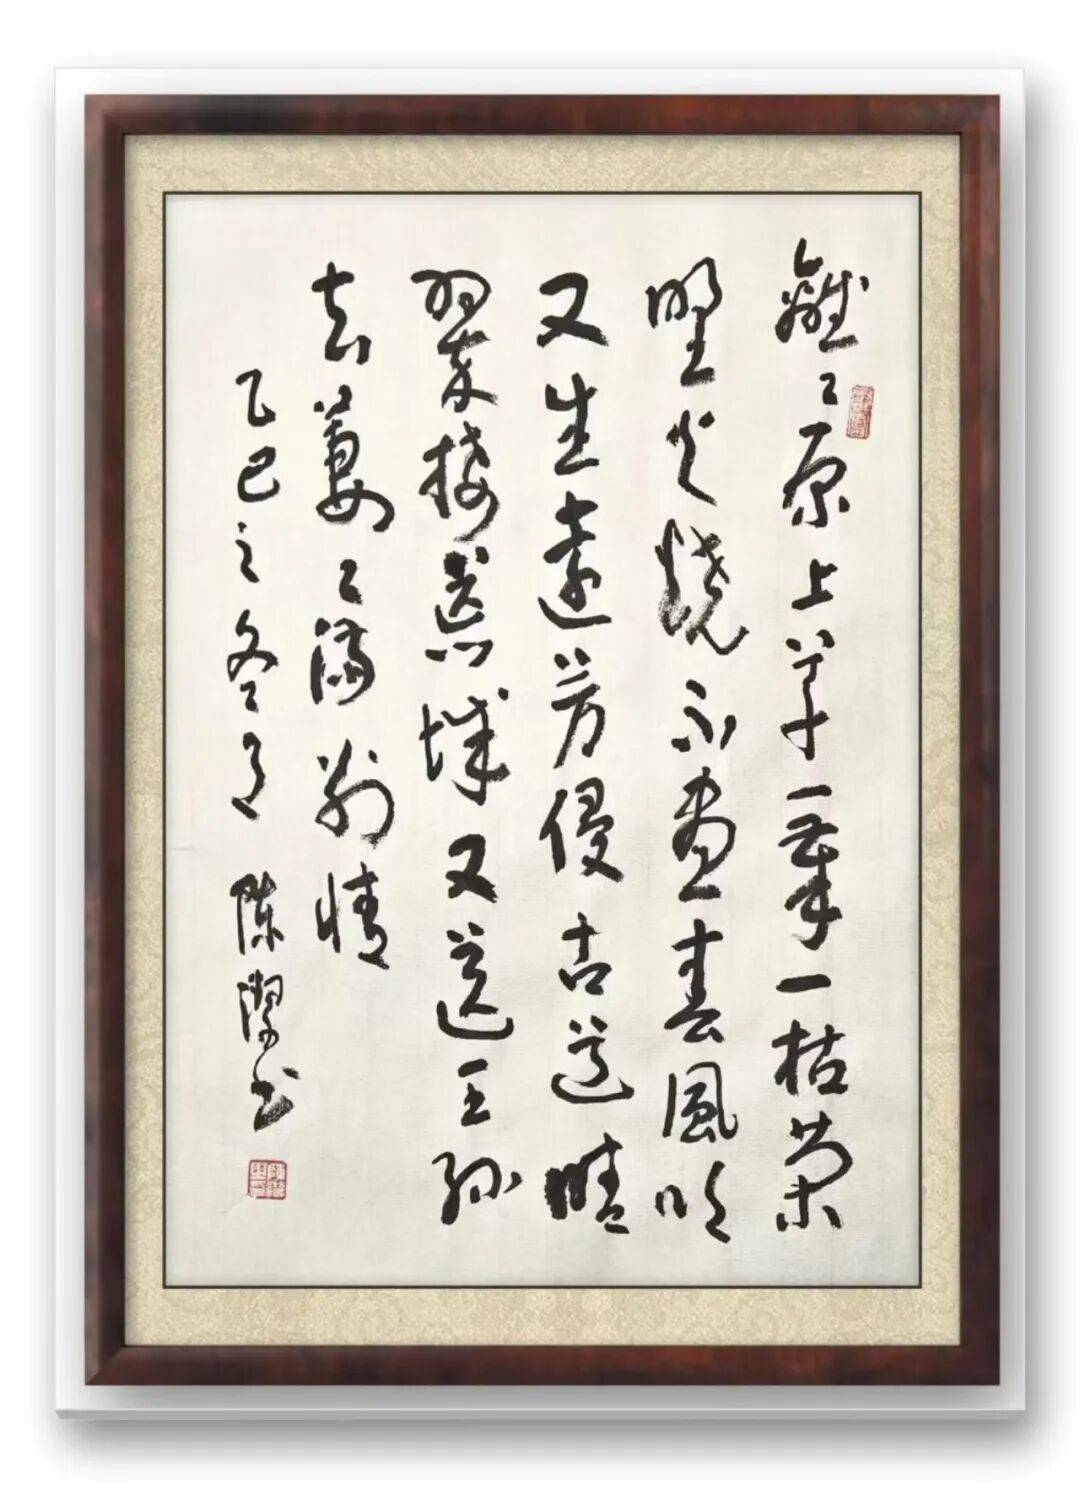 離々原上草一歲一枯榮
野火燒不盡春風吹
又生遠芳侵古道晴
翠接荒城又送王孫
去萋々滿別情
乙巳之冬月 陳潔書